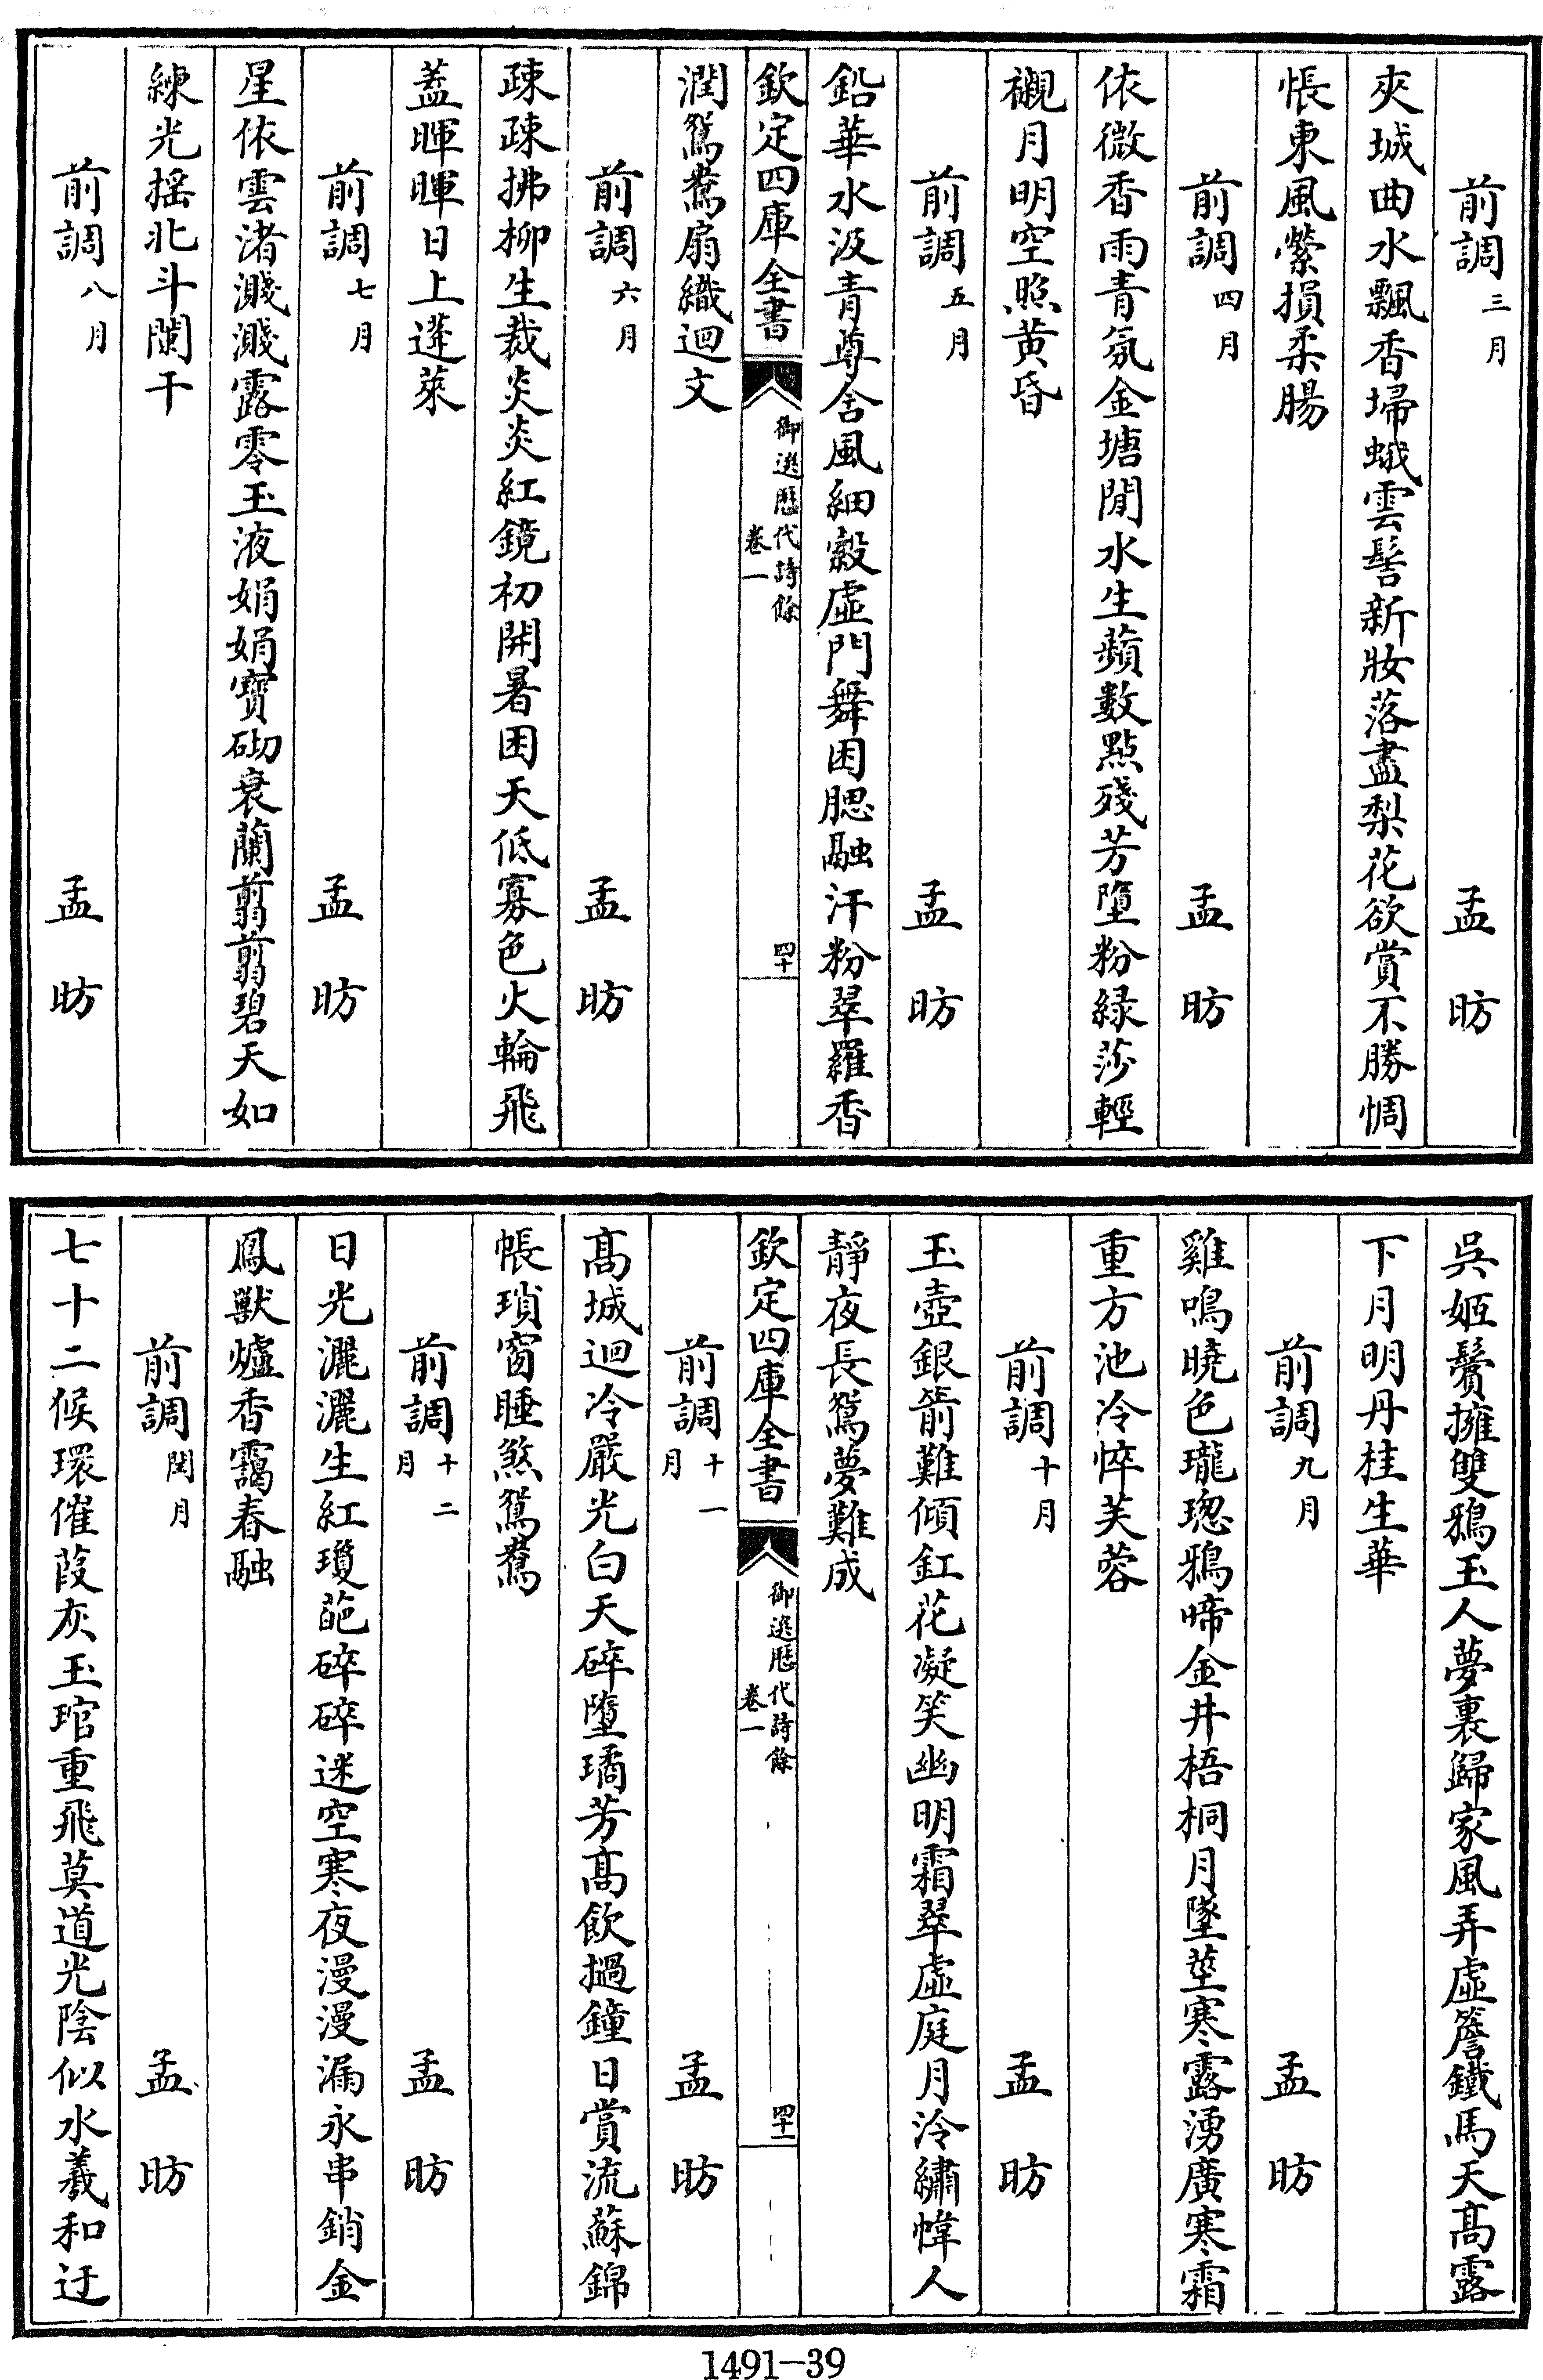 前調三月 孟昉
夾城曲水飄香埽蛾雲髻新妝落盡梨花欲賞不勝惆
悵東風縈損柔腸
前調四月 孟昉
依微香雨青氛金塘閒水生蘋數點殘芳墮粉緑莎輕
襯月明空照黄昏
前調五月 孟昉
鉛華水汲青尊含風細縠虛門舞困腮融汗粉翠羅香
欽定四庫全書 御選歷代詩餘 卷一 四十
潤鴛鴦扇織迴文
前調六月 孟昉
疎疎拂柳生裁炎炎紅鏡初開暑困天低寡色火輪飛
蓋暉暉日上蓬萊
前調七月 孟昉
星依雲渚濺濺露零玉液娟娟寶砌衰蘭翦翦碧天如
練光搖北斗闌干
前調八月 孟昉
吳姬鬢擁雙鴉玉人夢裏歸家風弄虛簷鐵馬天髙露
下月明丹桂生華
前調九月 孟昉
雞鳴曉色瓏璁鴉啼金井梧桐月墜莖寒露湧廣寒霜
重方池冷悴芙蓉
前調十月 孟昉
玉壺銀箭難傾釭花凝笑幽明霜翠虛庭月泠繡幃人
靜夜長鴛夢難成
欽定四庫全書 御選歷代詩餘 卷一 四十一
前調十一月 孟昉
髙城迴冷嚴光白天碎墮璚芳髙飲撾鐘日賞流蘇錦
帳瑣窗睡煞鴛鴦
前調十二月 孟昉
日光灑灑生紅瓊葩碎碎迷空寒夜漫漫漏永串銷金
鳳獸爐香靄春融
前調閏月 孟昉
七十二候環催葭灰玉琯重飛莫道光陰似水羲和迂
1491-39